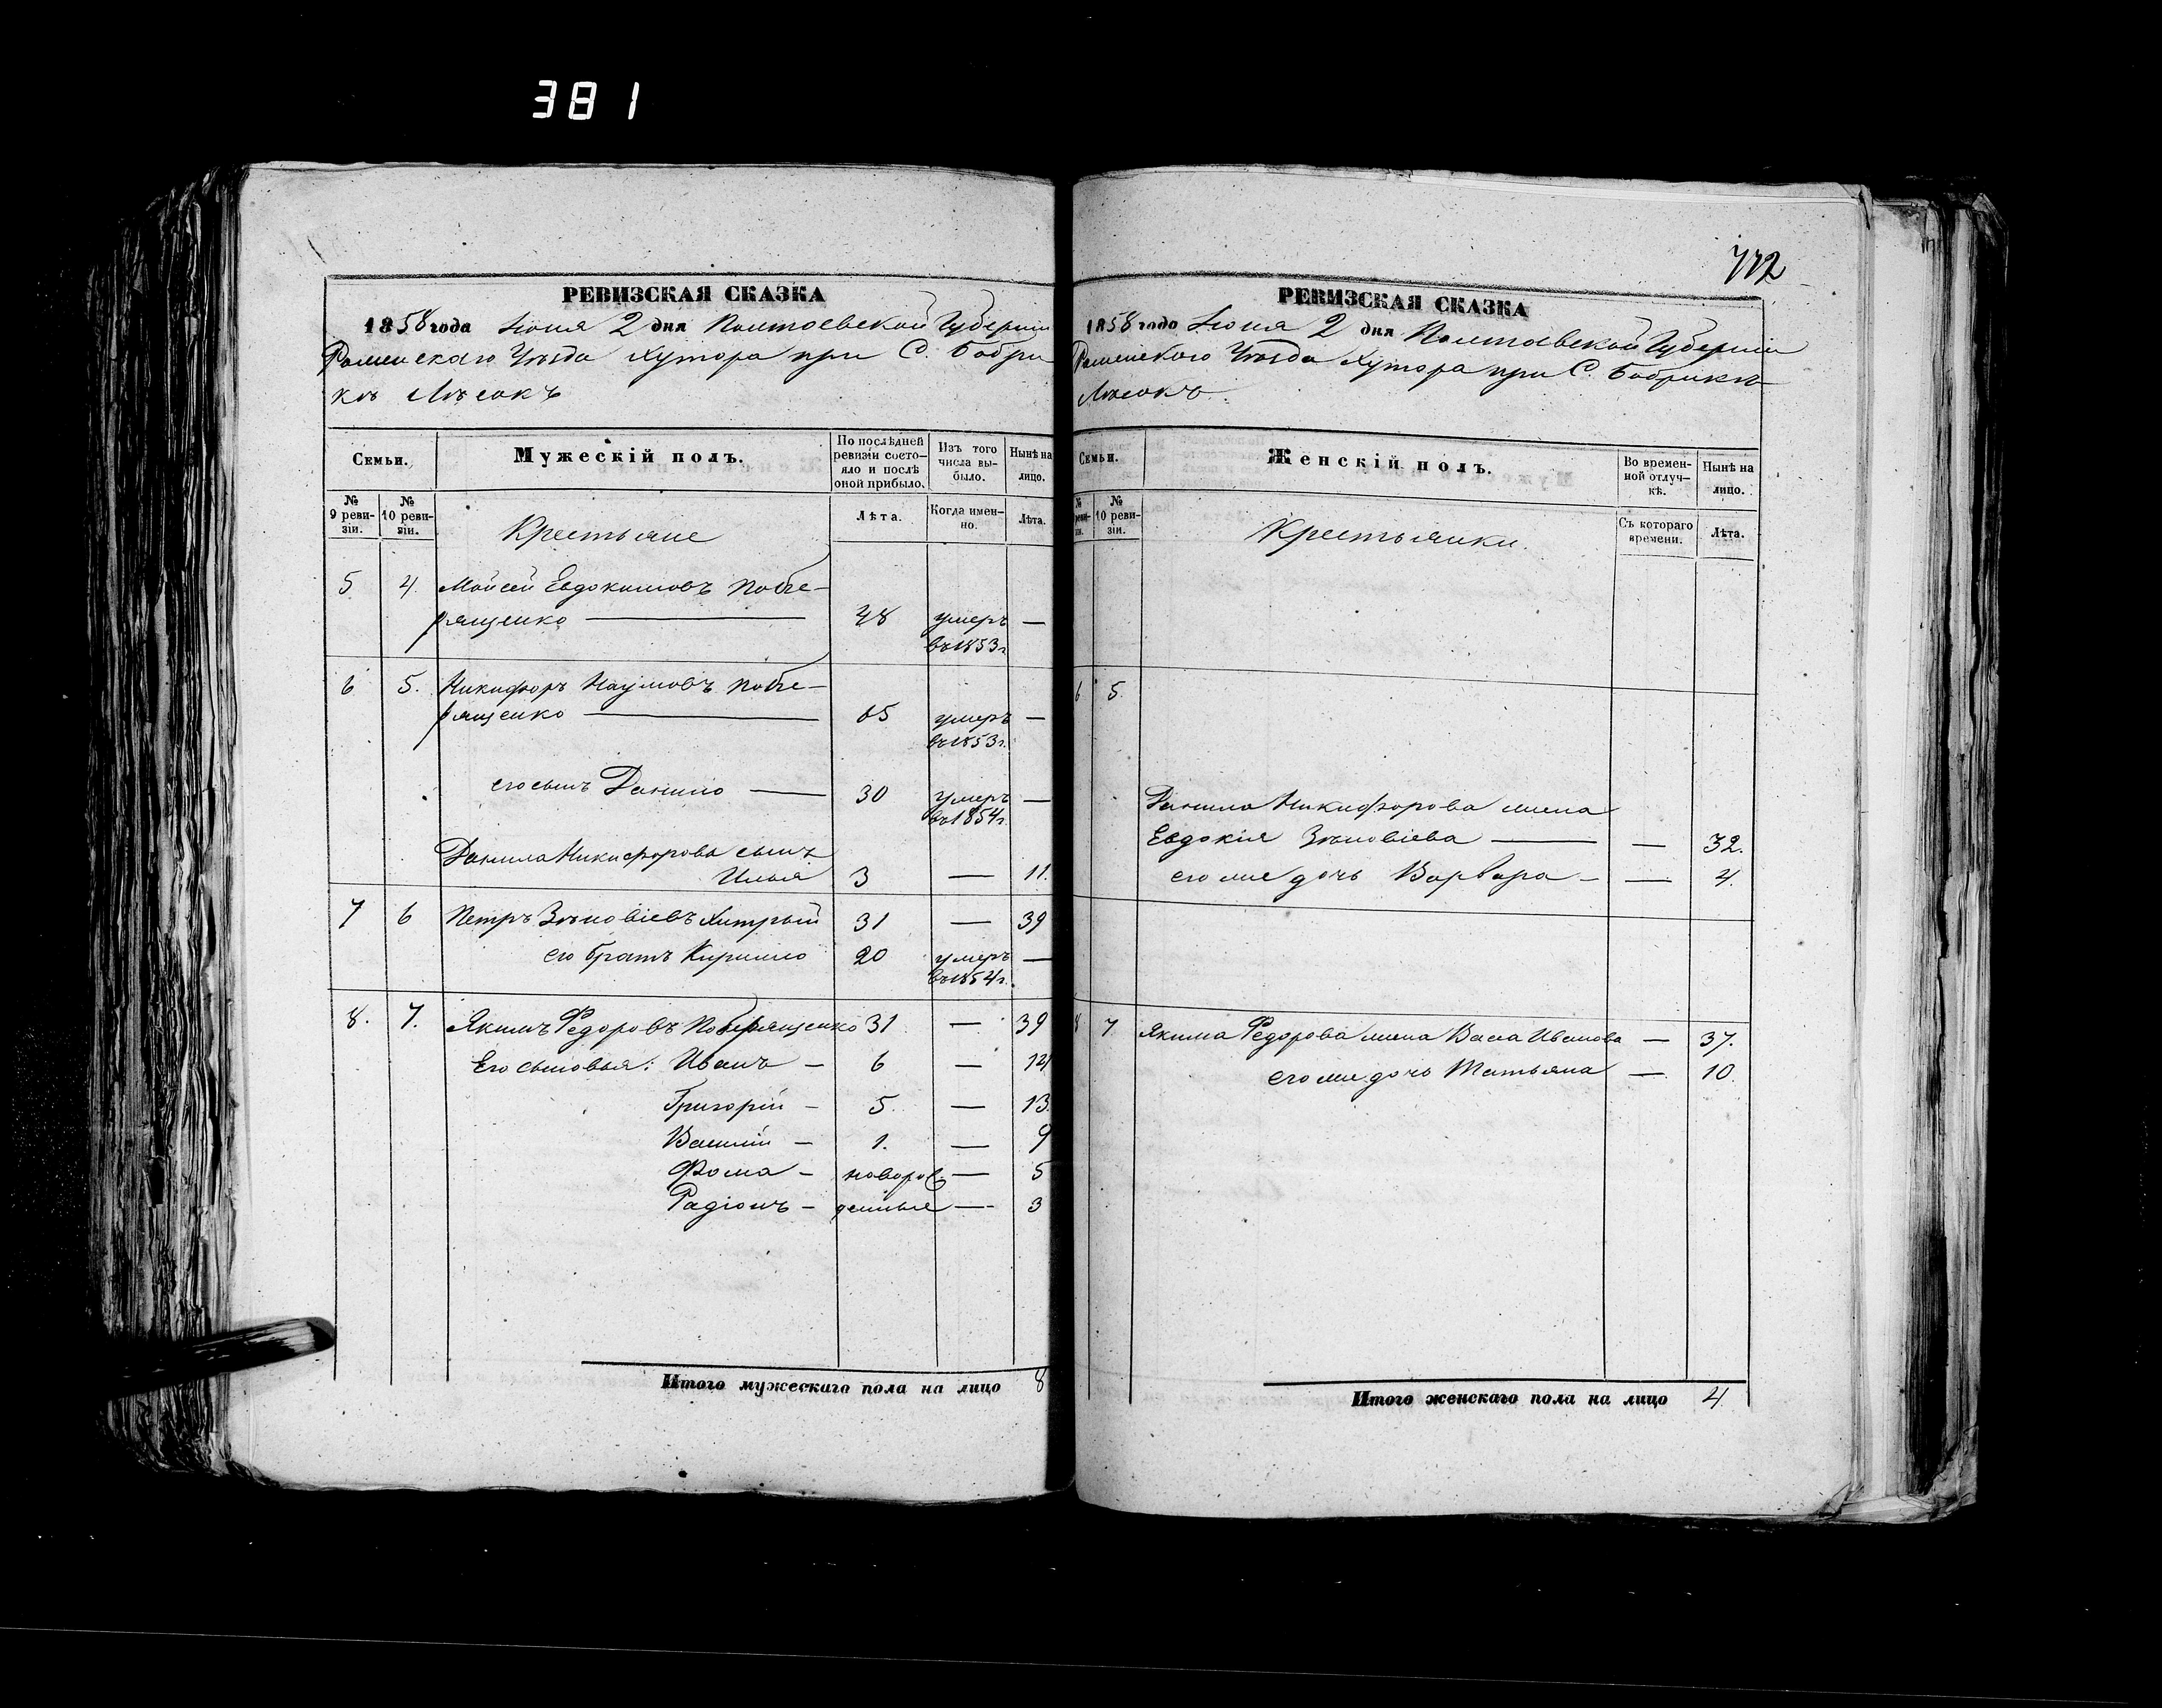 381
772
РЕВИЗСКАЯ СКАЗКА
1858 года Іюня 2 дня Полтавской Губерніи
Роменскаго Уѣзда Хутора при С. Бобри
кѣ Лѣсокъ
Семьи.
Мужескій полъ.
По послѣдней ревизіи состо-яло и послѣ оной прибыло.
Изъ того числа вы-было.
Нынѣ на лицо.
№ 9 реви-зіи.
№ 10 реви-зіи.
Крестьяне
Лѣта.
Когда имен-но.
Лѣта.
5 4. Мойсей Евдокимовъ Побе-
рященко — 48 умеръ —
въ 1853 г
6 5. Никифоръ Наумовъ Побе-
рященко — 65 умеръ —
въ 1853 г.
его сынъ Данило — 30 умеръ —
въ 1854 г.
Данила Никифорова сынъ
Илья 3 — 11.
7 6 Петръ Зѣновіевъ Хитрый 31 — 39
его братъ Кирило 20 умеръ —
въ 1854 г.
8. 7. Якимъ Федоровъ Поберященко 31 — 39
Его сыновья: Иванъ — 6 — 14
Григорій — 5. — 13.
Василій — 1. — 9
Фома — новорож — 5
Радіонъ — денные — 3
Итого мужескаго пола на лицо 8
РЕВИЗСКАЯ СКАЗКА
1858 года Іюня 2 дня Полтавской Губерніи
Роменскаго Уѣзда Хутора при С. Бобрикѣ
Лѣсокъ.
Семьи.
Женскій полъ.
Во времен-ной отлуч-кѣ.
Нынѣ на лицо.
№ 10 реви-зіи.
Крестьянки.
Съ котораго времени.
Лѣта.
6 5.
Данила Никифорова жена
Евдокія Зѣновіева — — 32.
его же дочь Варвара — — 4.
8 7 Якима Федорова жена Васа Иванова — 37.
его же дочь Татьяна — 10.
Итого женскаго пола на лицо 4